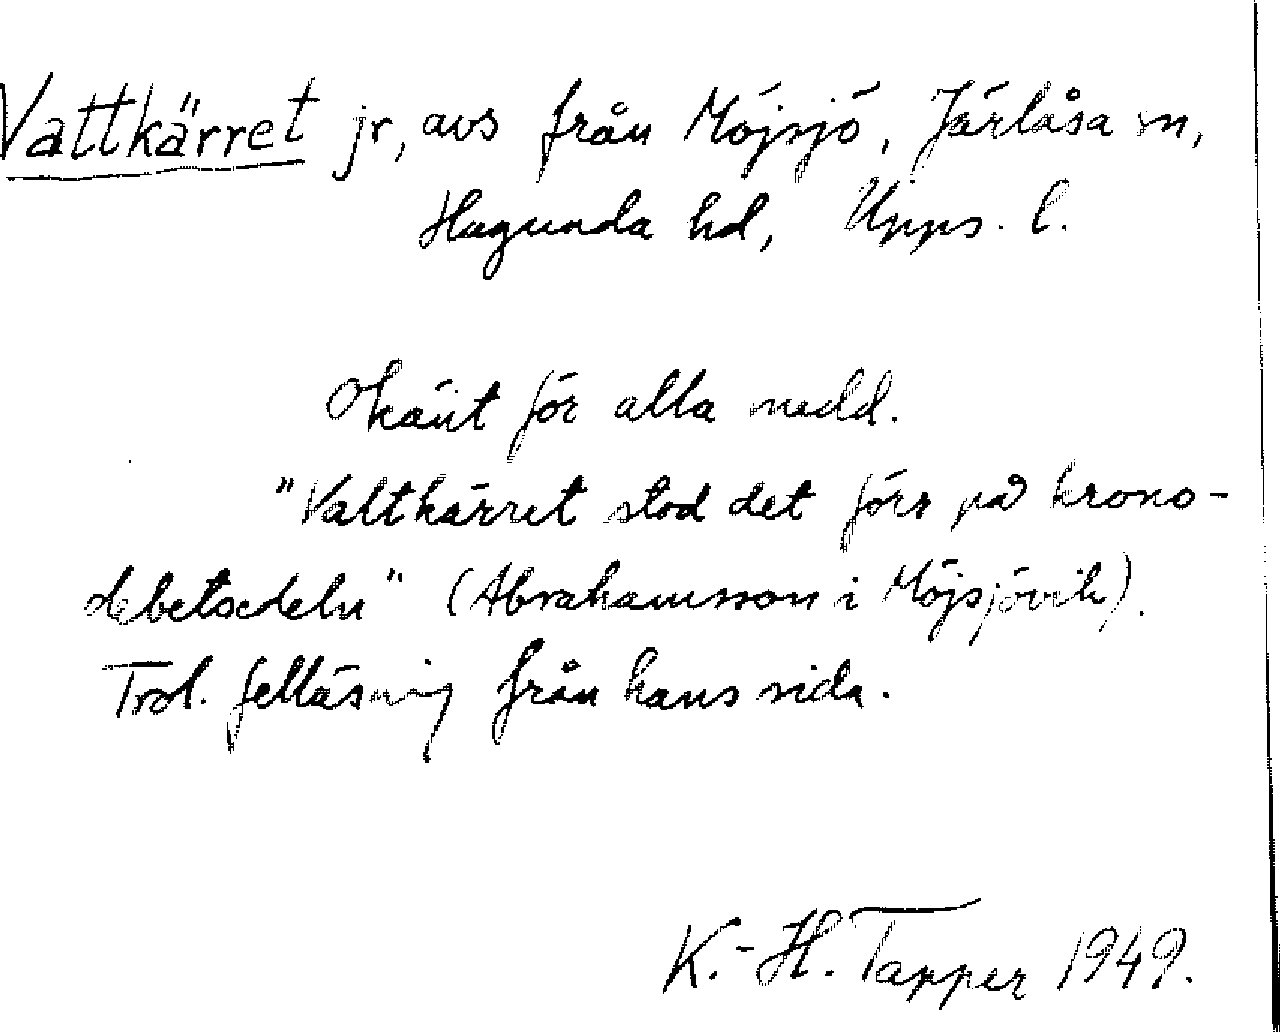 Vattkärret jr, avs från Möjsjö, Järlåsa sn,
Hagunda hd, Upps. l.
Okänt för alla medd.
"Valtkärret stod det förr på krono-
debetsedeln" (Abrahamsson i Möjsjövik).
Trol. felläsning från hans sida.
K.-H. Tapper 1949.